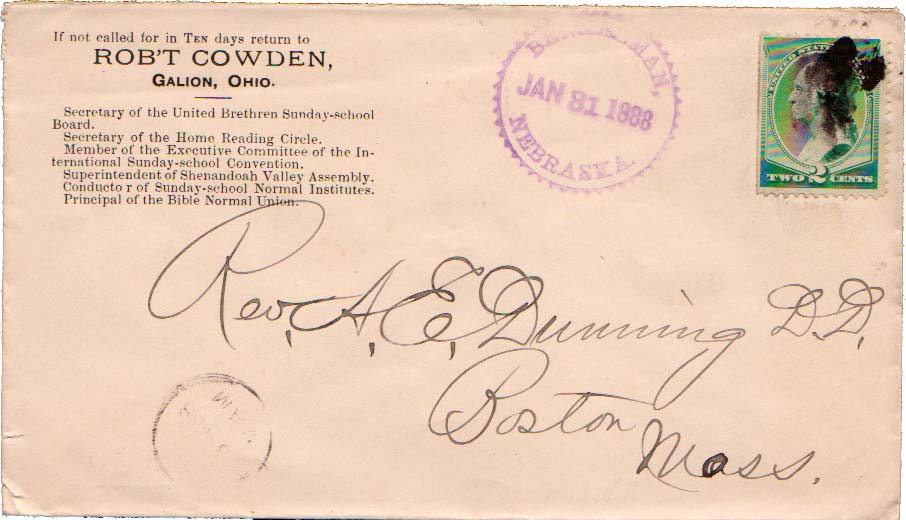 If not called for in TEN days return to
ROB'T COWDEN,
GALION, OHIO.
Secretary of the United Brethren Sunday-school
Board.
Secretary of the Home Reading Circle.
Member of the Executive Committee of the In-
ternational Sunday-school Convention.
Superintendent of Shenandoah Valley Assembly.
Conductor of Sunday-school Normal Institutes.
Principal of the Bible Normal Union.
JAN 31 1888
NEBRASKA.
UNITED STATES
TWO 2 CENTS
Rev. A. E. Dunning D.D.
Boston
Mass.